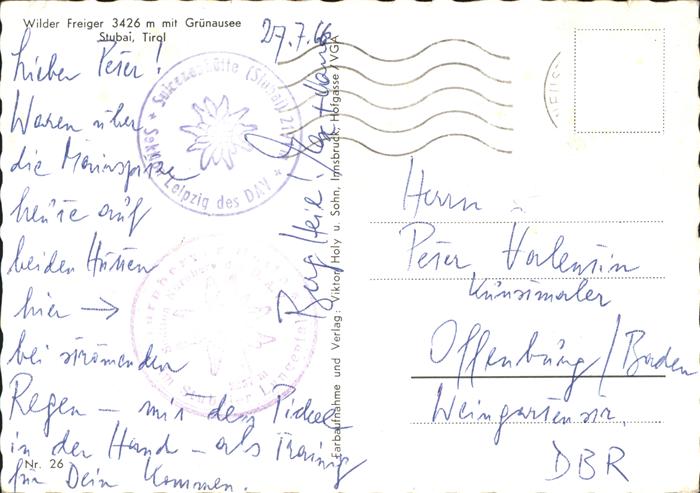 Wilder Freiger 3426 m mit Grünausee
Stubai, Tirol
27.7.66
Lieber Peter!
Waren über
die
heute auf
beiden Hütten
hier →
bei strömenden
Regen – mit dem Pickel
in der Hand – als Training
für Dein Kommen.
Berg Heil!
Nr. 26
Farbaufnahme und Verlag: Viktor Holy u. Sohn, Innsbruck, Hofgasse/VGA
Sulzenauhütte (Stubai)
Sektion Leipzig des DAV
Herrn
Peter Valentin
Kunstmaler
Offenburg/Baden
Weingartenstr.
DBR